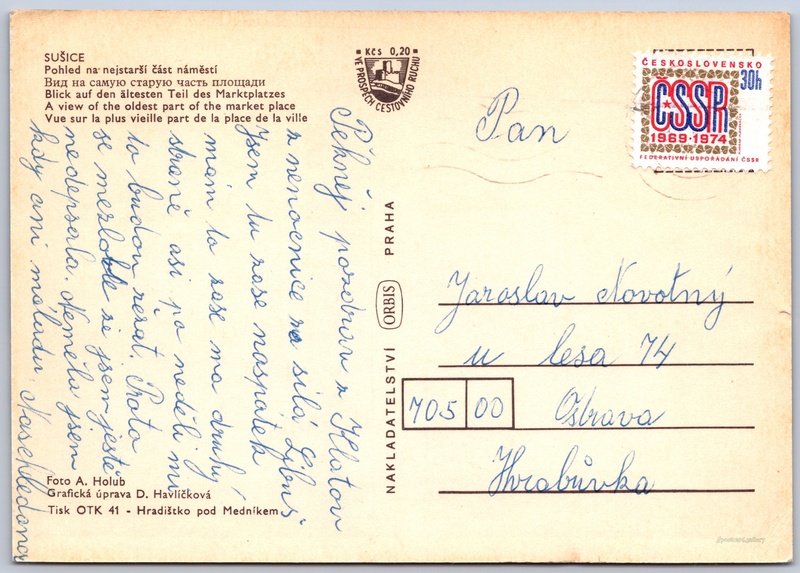 SUŠICE
Pohled na nejstarší část náměstí
Вид на самую старую часть площади
Blick auf den ältesten Teil des Marktplatzes
A view of the oldest part of the market place
Vue sur la plus vieille part de la place de la ville
Kčs 0,20
VE PROSPĚCH CESTOVNÍHO RUCHU
ČESKOSLOVENSKO
30h
ČSSR
1969-1974
FEDERATIVNÍ USPOŘÁDÁNÍ ČSSR
Pěknej pozdrav z Klatov
z nemocnice sílá Libuš
Jsem tu zase naspátek
mám to zase na druhý
straně asi po neděli mi
to budou řezat. Proto
se nezlobte že jsem ještě
nedepsala. Neměla jsem
kdy ani náladu. Nasehledanou
NAKLADATELSTVÍ ORBIS PRAHA
Pan
Jaroslav Novotný
u lesa 74
705 00 Ostrava
Hrabůvka
Foto A. Holub
Grafická úprava D. Havlíčková
Tisk OTK 41 - Hradištko pod Medníkem